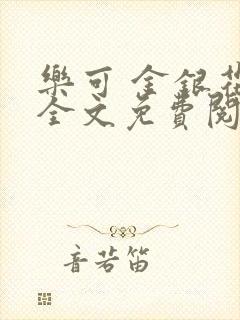 樂可 金銀
全文免費閱
音若笛